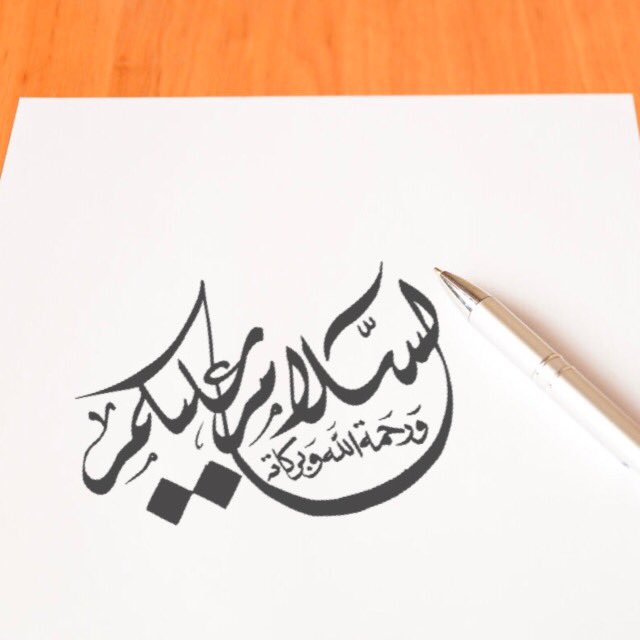 السَّلام عليكم
وَرَحمَة اللَّه وَبَركاته